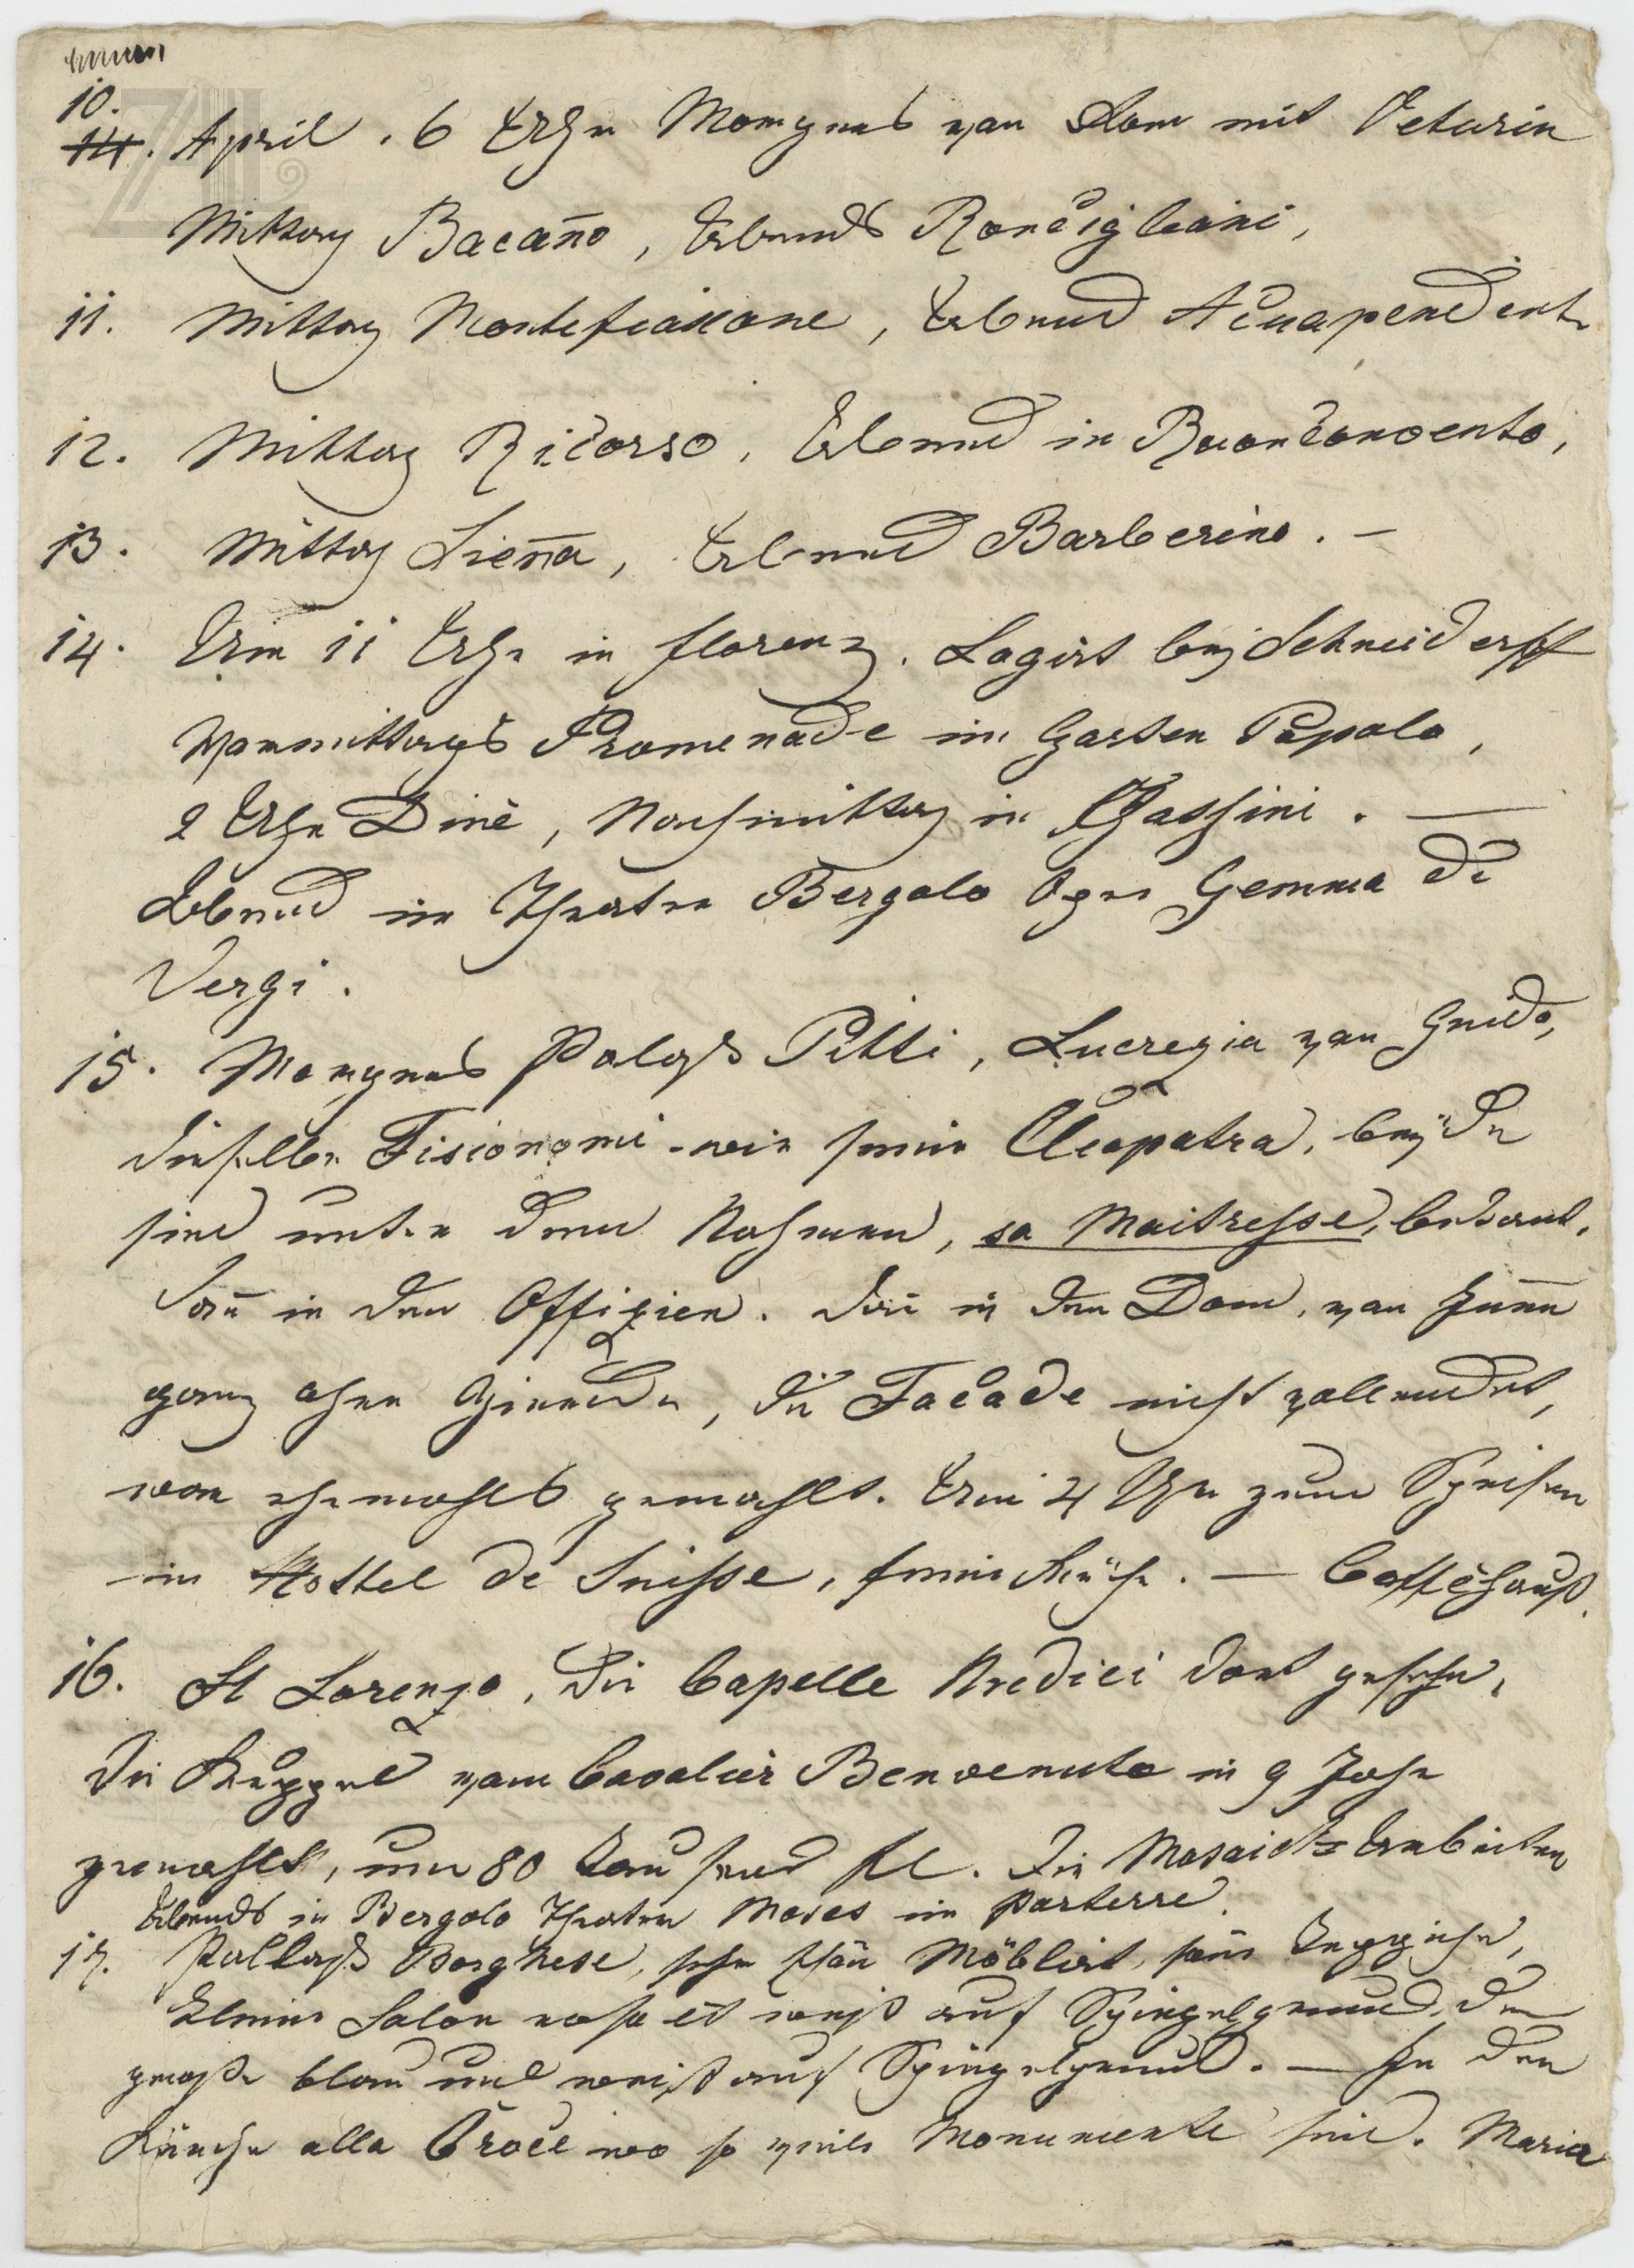 10.
14. April. 6 Uhr Morgens von Rom mit Veturin
Mittag Bacaño, Abends Roncigliani,
11. Mittag Montefiascone, Abend Acuapendente
12. Mittag Ricorso, Abend in Buonconvento,
13. Mittag Sieña, Abend Barberino. –
14. Um 11 Uhr in Florenz. Logirt bey Schneiderff
Vormittags Promenade im Garten Popolo,
2 Uhr Diné, Nachmittag in Chassini. —
Abend im Theater Bergolo Oper Gemma di
Vergi.
15. Morgens Palais Pitti, Lucrezia von Guido,
dieselbe Fisionomi wie seine Cleopatra, beyde
sind unter dem Nahmen, sa Maitresse, bekant.
Dañ in den Offizien. Dañ in den Dom, von Innen
ganz ohne Gemelde, die Facade nicht vollendet,
war ehemahls gemahlt. Um 4 Uhr zum Speisen
im Hottel de Suisse, feine Küche. — Caffehauß.
16. St Lorenzo, die Capelle Medici dort gesehen,
die Kuppel vom Cavalier Benvenuto in 9 Jahr
gemahlt, um 80 Tausend fl. Die Mosaick Arbeiten
Abends in Bergolo Theater Moses im Parterre.
17. Pallais Borghese, sehr schön Möblirt, Teppiche,
kleiner Salon rosa et weiß auf Spiegelgrund, der
große blau und weiß auf Spiegelgrund. — In der
Kirche alla Croce wo so viele Monumente sind. Maria